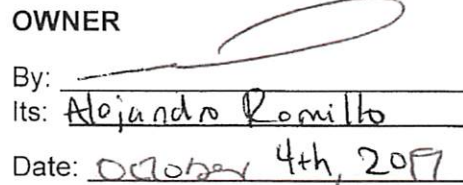 OWNER
By:
Its: Alejandro Romillo
Date: October 4th, 2017